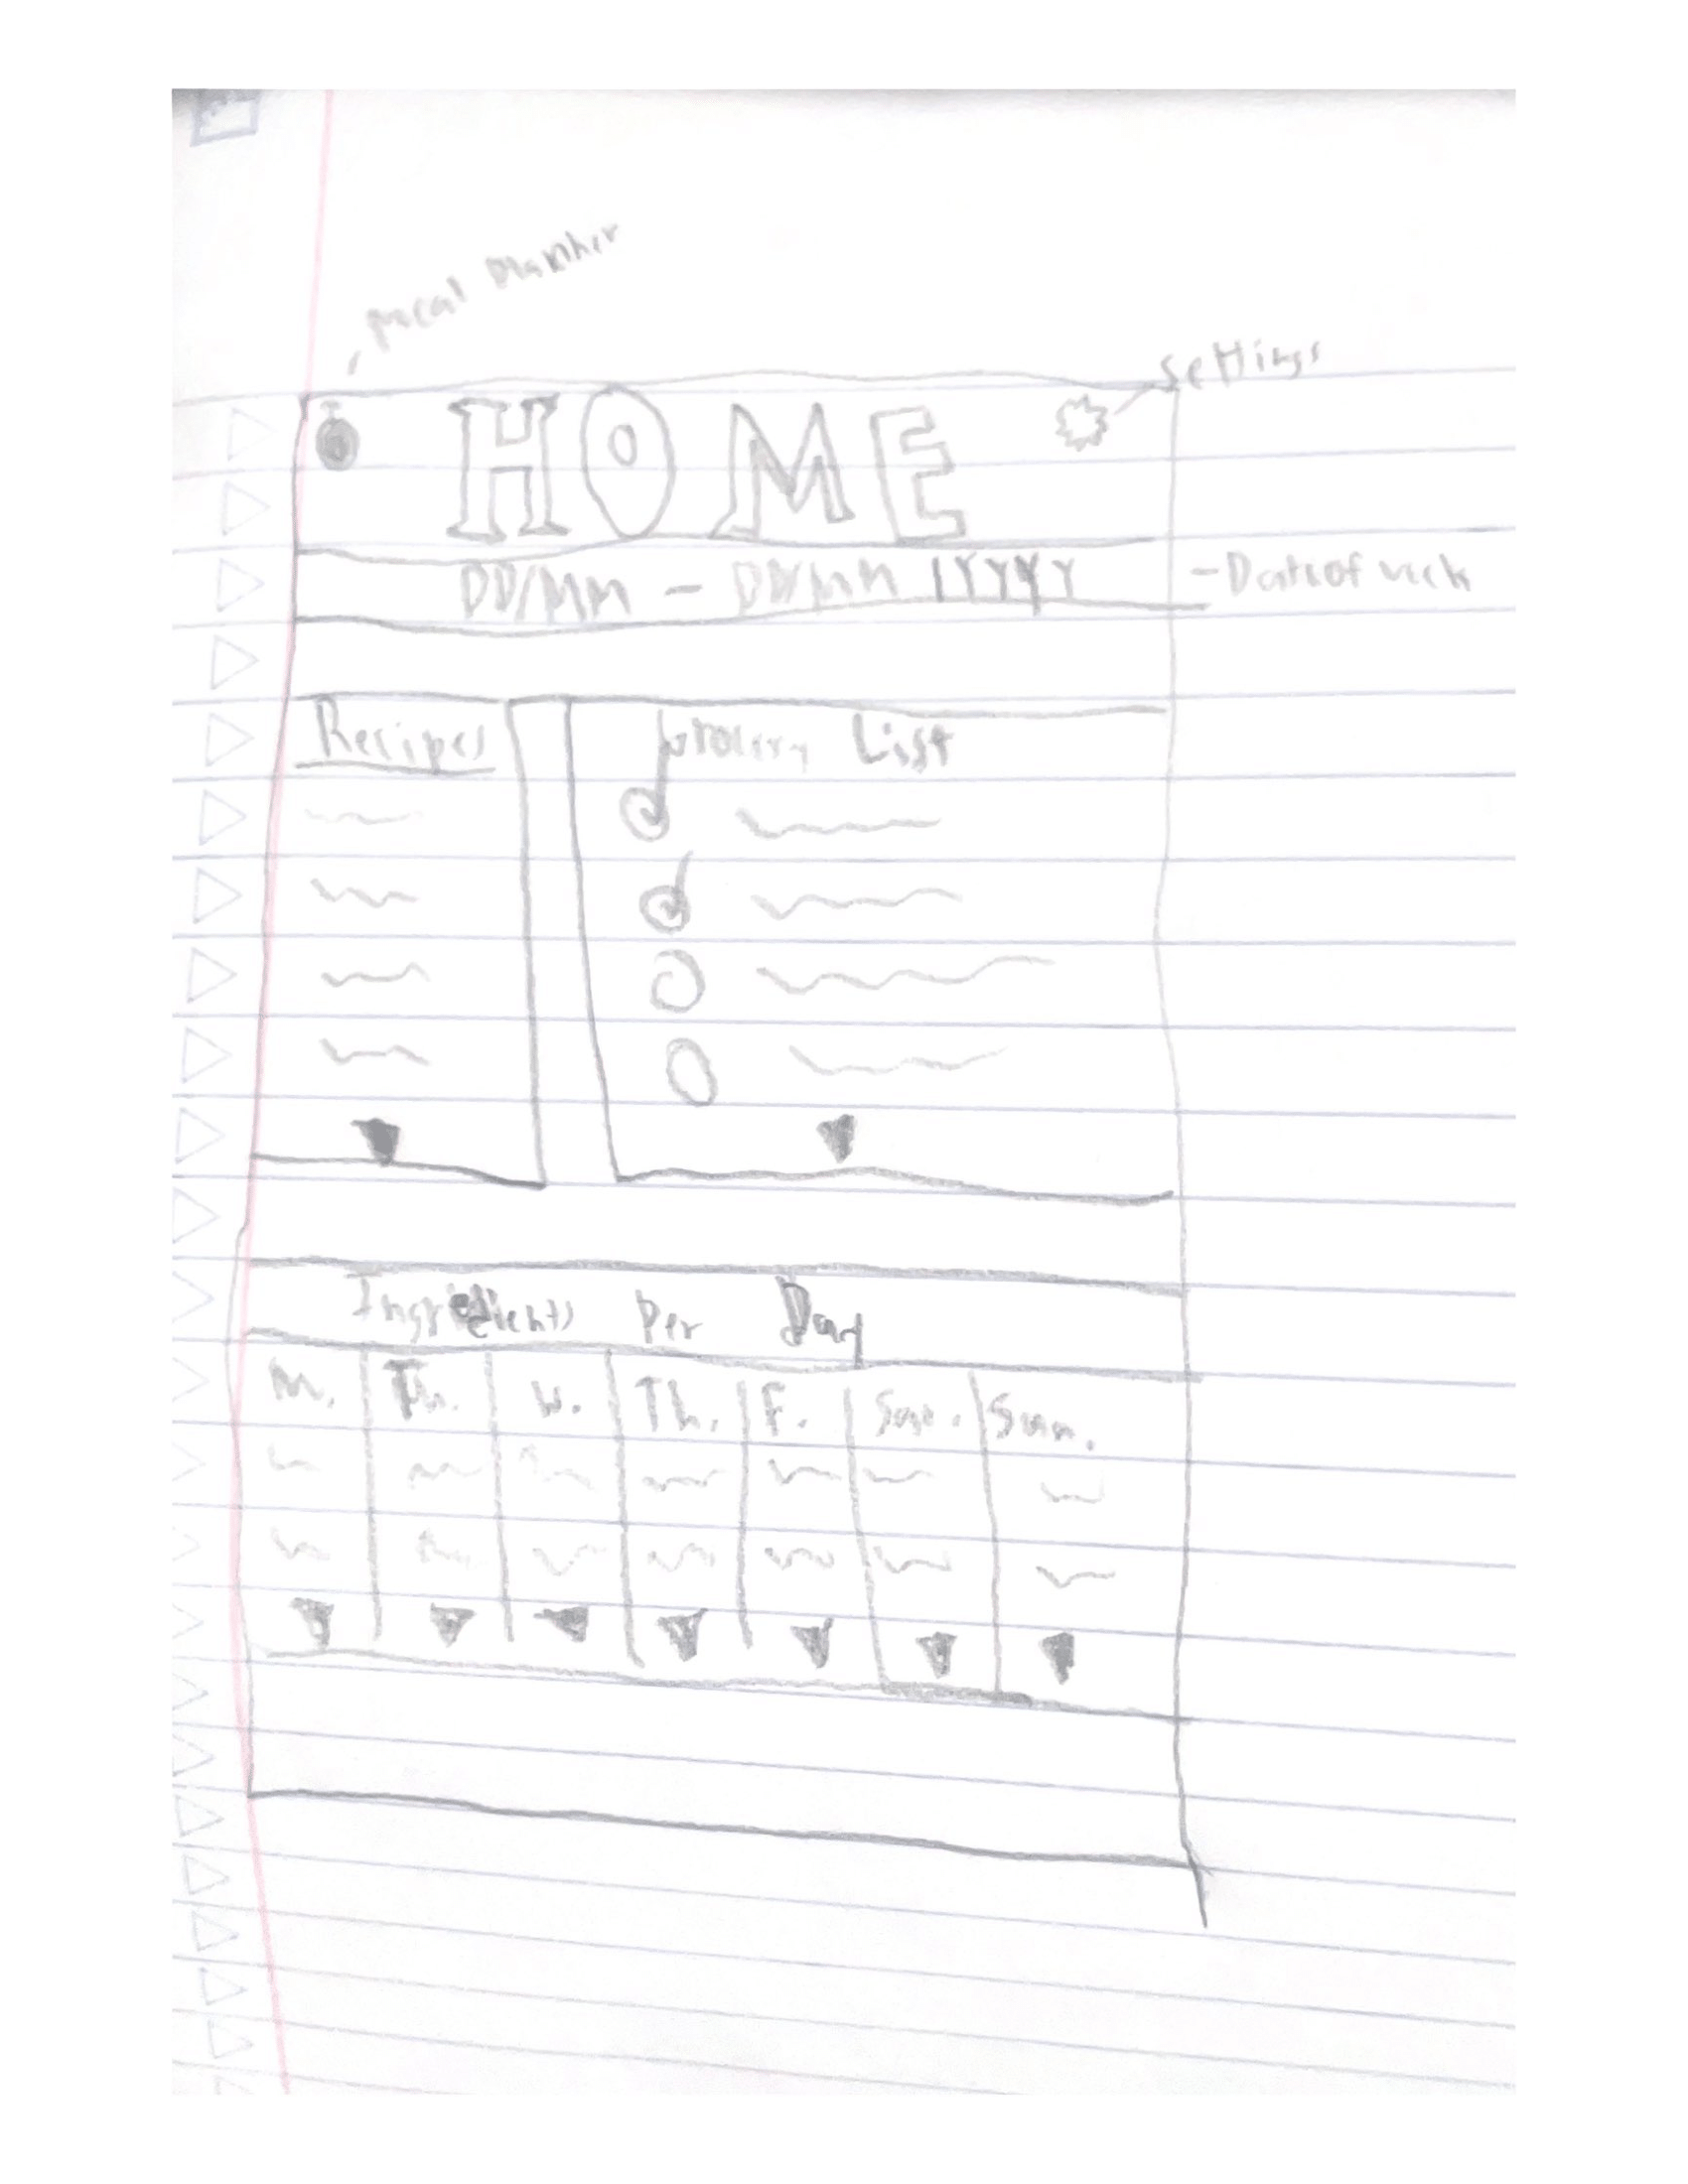 meal planner
settings
HOME
DD/MM - DD/MM /YYYY
- Date of week
Recipes
Grocery List
Ingredients Per Day
M. Th. W. Th. F. Sat. Sun.